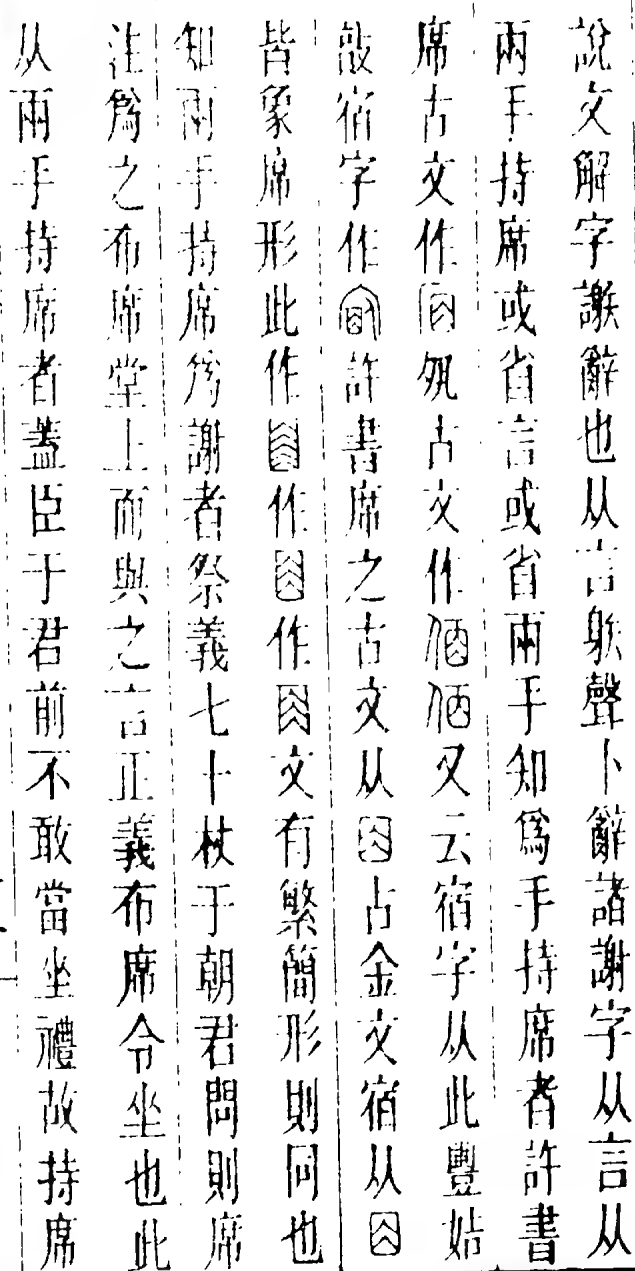 說文解字謝辭也从言躲聲卜辭諸謝字从言从
兩手持席或省言或省兩手知為手持席者許書
席古文作夙古文作又云宿字从此豐姞
敼宿字作許書席之古文从古金文宿从
皆象席形此作作作文有繁簡形則同也
知兩手持席為謝者祭義七十杖于朝君問則席
注為之布席堂上而與之言正義布席令坐也此
从兩手持席者蓋臣于君前不敢當坐禮故持席